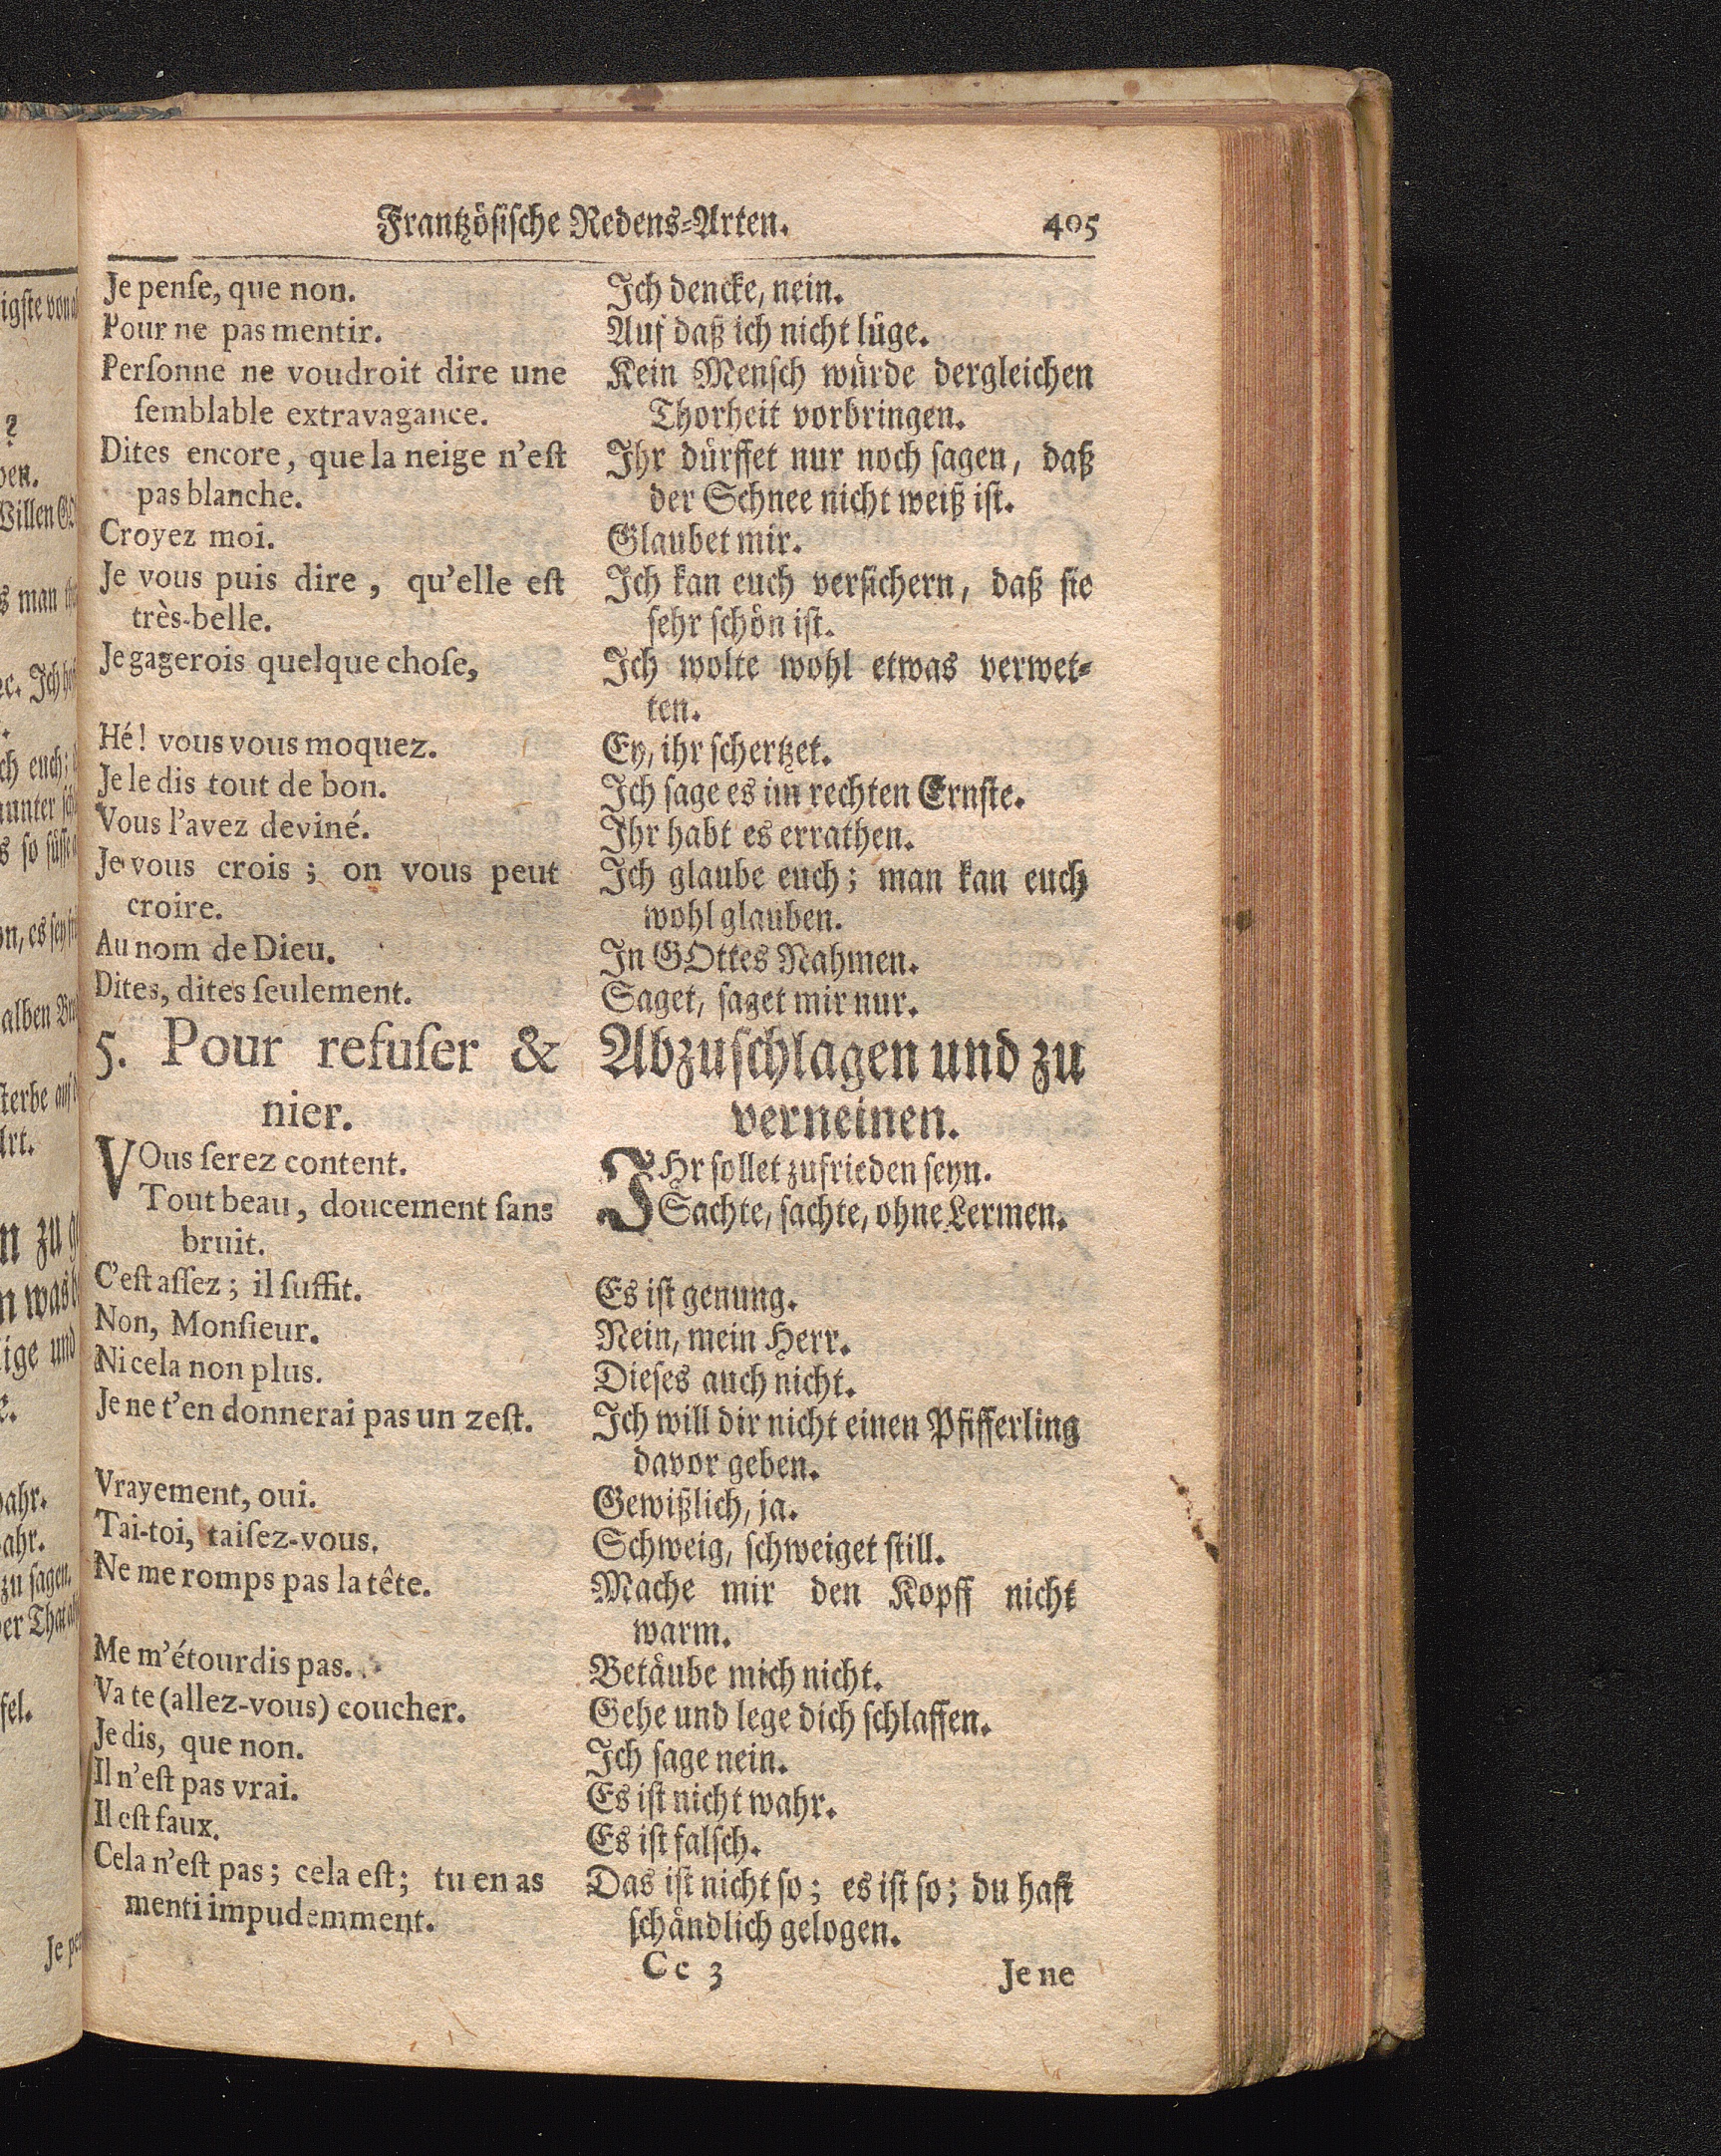 Frantzösische Redens-Arten. 405
Je penſe, que non.
Pour ne pas mentir.
Perſonne ne voudroit dire une
ſemblable extravagance.
Dites encore, que la neige n'eſt
pas blanche.
Croyez moi.
Je vous puis dire, qu'elle eſt
très-belle.
Je gagerois quelque choſe,
Hé! vous vous moquez.
Je le dis tout de bon.
Vous l'avez deviné.
Je vous crois; on vous peut
croire.
Au nom de Dieu.
Dites, dites ſeulement.
5. Pour refuſer &
nier.
VOus ſerez content.
Tout beau, doucement ſans
bruit.
C'eſt aſſez; il ſuffit.
Non, Monſieur.
Ni cela non plus.
Je ne t'en donnerai pas un zeſt.
Vrayement, oui.
Tai-toi, taiſez-vous.
Ne me romps pas la tête.
Me m'étourdis pas.
Va te (allez-vous) coucher.
Je dis, que non.
Il n'eſt pas vrai.
Il eſt faux.
Cela n'eſt pas; cela eſt; tu en as
menti impudemment.
Ich dencke, nein.
Auf daß ich nicht lüge.
Kein Menſch würde dergleichen
Thorheit vorbringen.
Ihr dürffet nur noch ſagen, daß
der Schnee nicht weiß iſt.
Glaubet mir.
Ich kan euch verſichern, daß ſie
ſehr ſchön iſt.
Ich wolte wohl etwas verwet-
ten.
Ey, ihr ſchertzet.
Ich ſage es im rechten Ernſte.
Ihr habt es errathen.
Ich glaube euch; man kan euch
wohl glauben.
In GOttes Nahmen.
Saget, ſaget mir nur.
Abzuſchlagen und zu
verneinen.
IHr ſollet zufrieden ſeyn.
Sachte, ſachte, ohne Lermen.
Es iſt genung.
Nein, mein Herr.
Dieſes auch nicht.
Ich will dir nicht einen Pfifferling
davor geben.
Gewißlich, ja.
Schweig, ſchweiget ſtill.
Mache mir den Kopff nicht
warm.
Betäube mich nicht.
Gehe und lege dich ſchlaffen.
Ich ſage nein.
Es iſt nicht wahr.
Es iſt falſch.
Das iſt nicht ſo; es iſt ſo; du haſt
ſchändlich gelogen.
Cc 3 Je ne